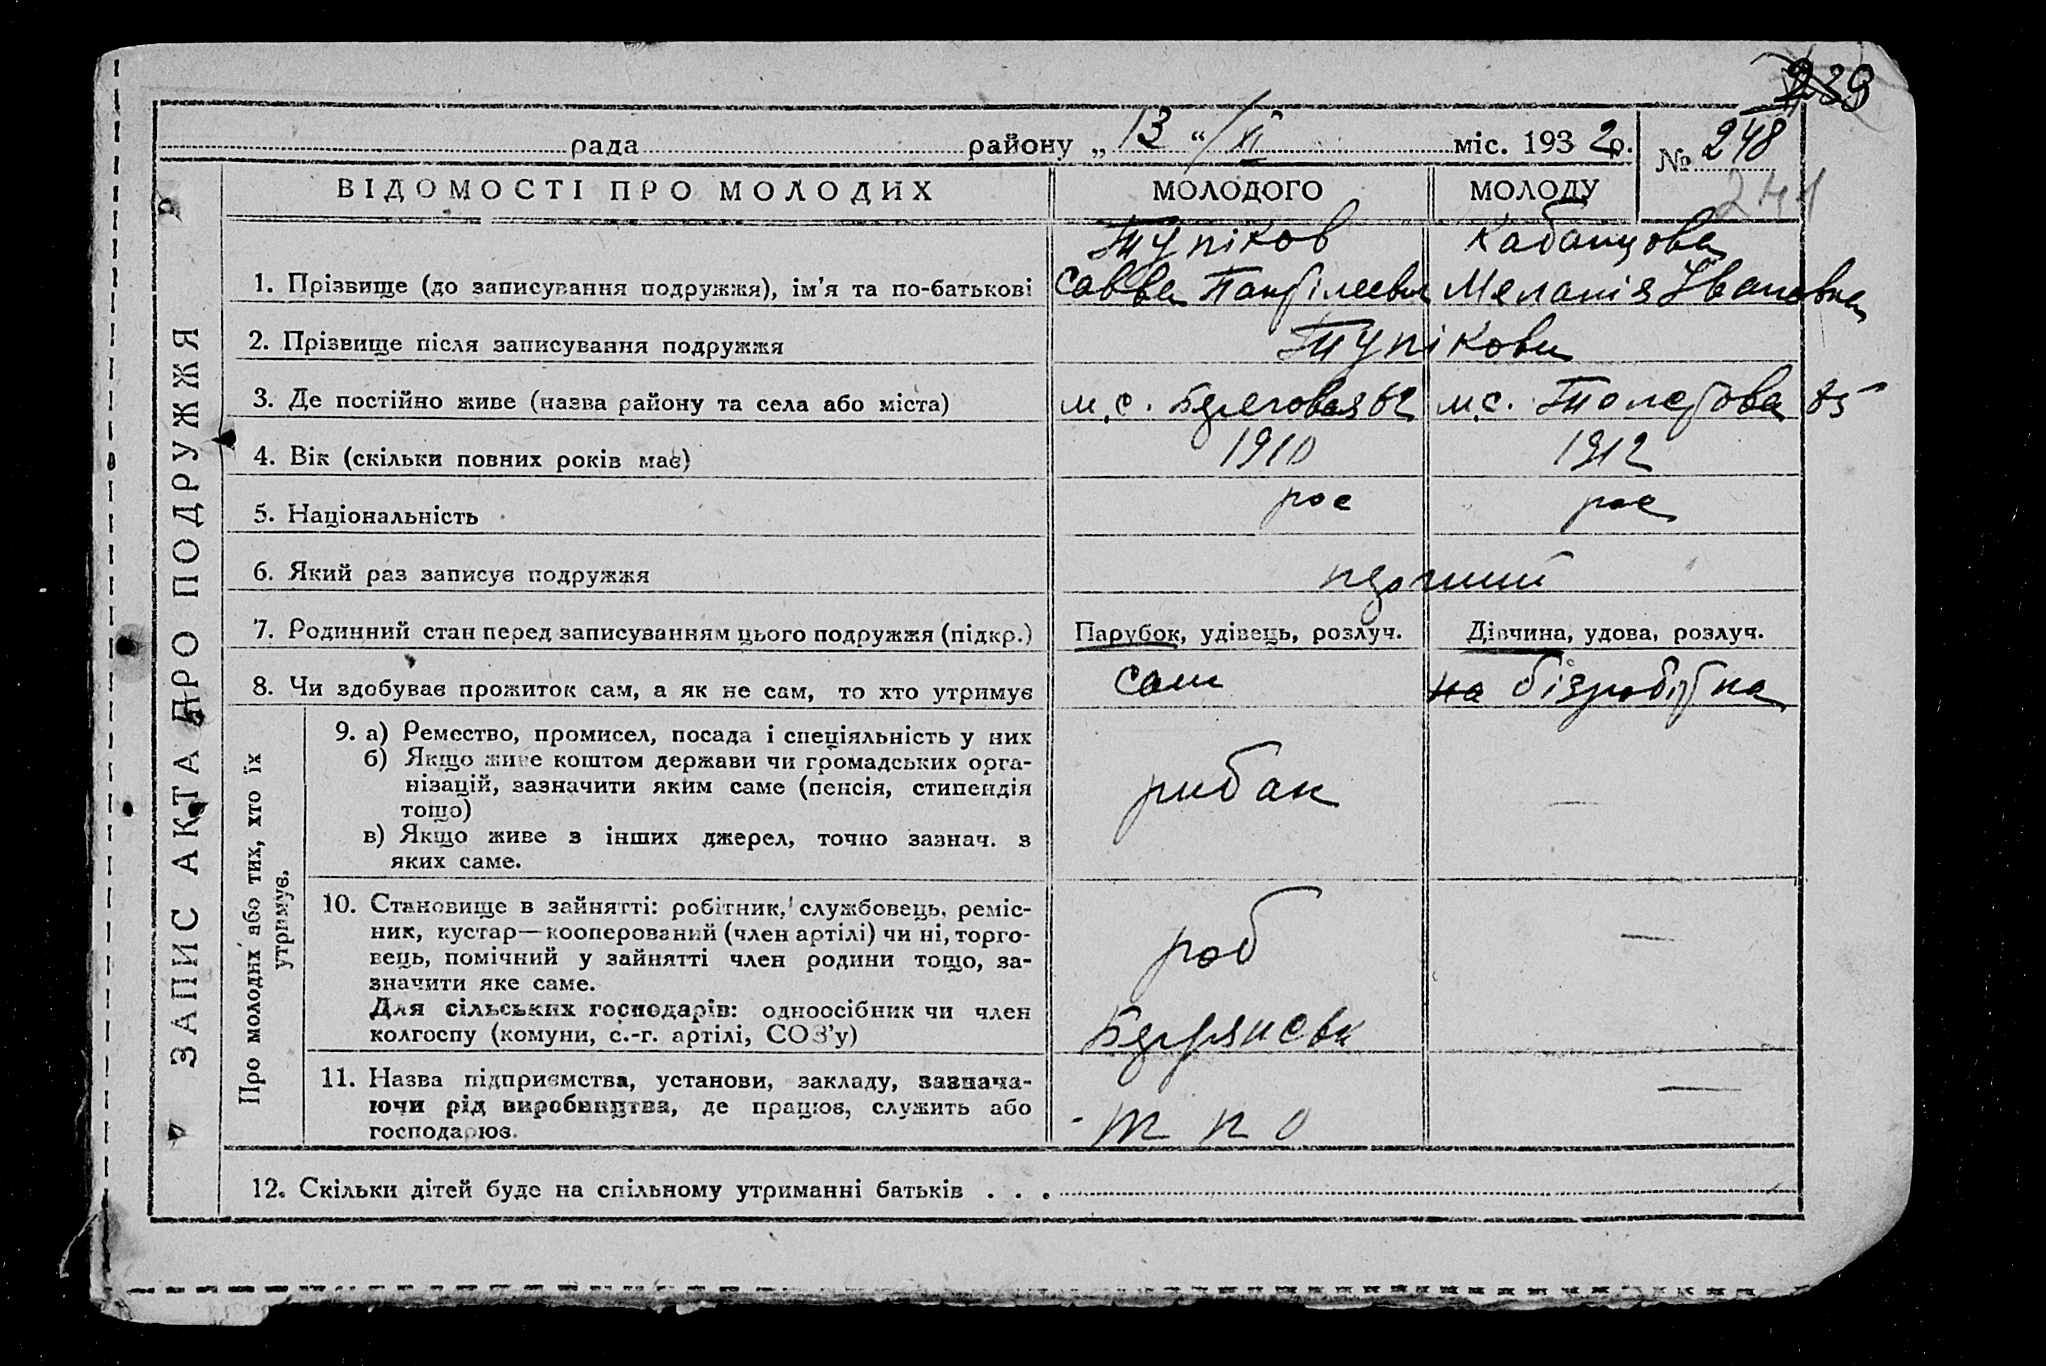 239
рада района „ 13 “ / XI міс. 1932 р.
№ 248
241
ЗАПИС АКТА ПРО ПОДРУЖЖЯ
ВІДОМОСТІ ПРО МОЛОДИХ МОЛОДОГО МОЛОДУ
Тупіков Кабанцова
1. Прізвище (до записування подружжя), ім'я та по-батькові Савва Панфілеевич Меланія Івановна
2. Прізвище після записування подружжя Тупікови
3. Де постійно живе (назва району та села або міста) м.с. Береговая 62 м.с. 85
4. Вік (скільки повних років має) 1910 1912
5. Національність рос рос
6. Який раз записує подружжя перший
7. Родинний стан перед записуванням цього подружжя (підкр.) Парубок, удівець, розлуч. Дівчина, удова, розлуч.
8. Чи здобуває прожиток сам, а як не сам, то хто утримує сам на безробітна
Про молодих або тих, хто їх
утримує.
9. а) Ремество, промисел, посада і спеціяльність у них
б) Якщо живе коштом держави чи громадських орга-
нізацій, зазначити яким саме (пенсія, стипендія
тощо)
в) Якщо живе з інших джерел, точно зазнач. з
яких саме.
рибак —
10. Становище в зайнятті: робітник, службовець, реміс-
ник, кустар—кооперований (член артілі) чи ні, торго-
вець, помічний у зайнятті член родини тощо, за-
значити яке саме.
Для сільських господарів: одноосібник чи член
колгоспу (комуни, с.-г. артілі, СОЗ'у)
роб —
Бердянськ
11. Назва підприємства, установи, закладу, зазнача-
ючи рід виробництва, де працює, служить або
господарює.
т п о —
12. Скільки дітей буде на спільному утриманні батьків . . .